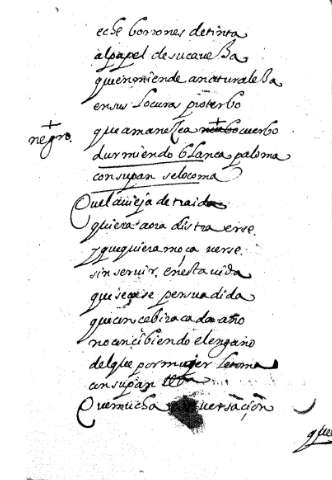 eche borrones de tinta
al papel de su caveza
que enmiende a naturaleza
en su locura proterbo
negro. que amanezca cuerbo
durmiendo blanca paloma
con su pan se lo coma
Que la vieja detraida
quiera aora distraerse
y que quiera moça verse
sin servir en esta vida
que se persuadida
que concebira cada año
no concibiendo el engaño
del que por muger la toma
con su pan
Que mucha conversaçion
que